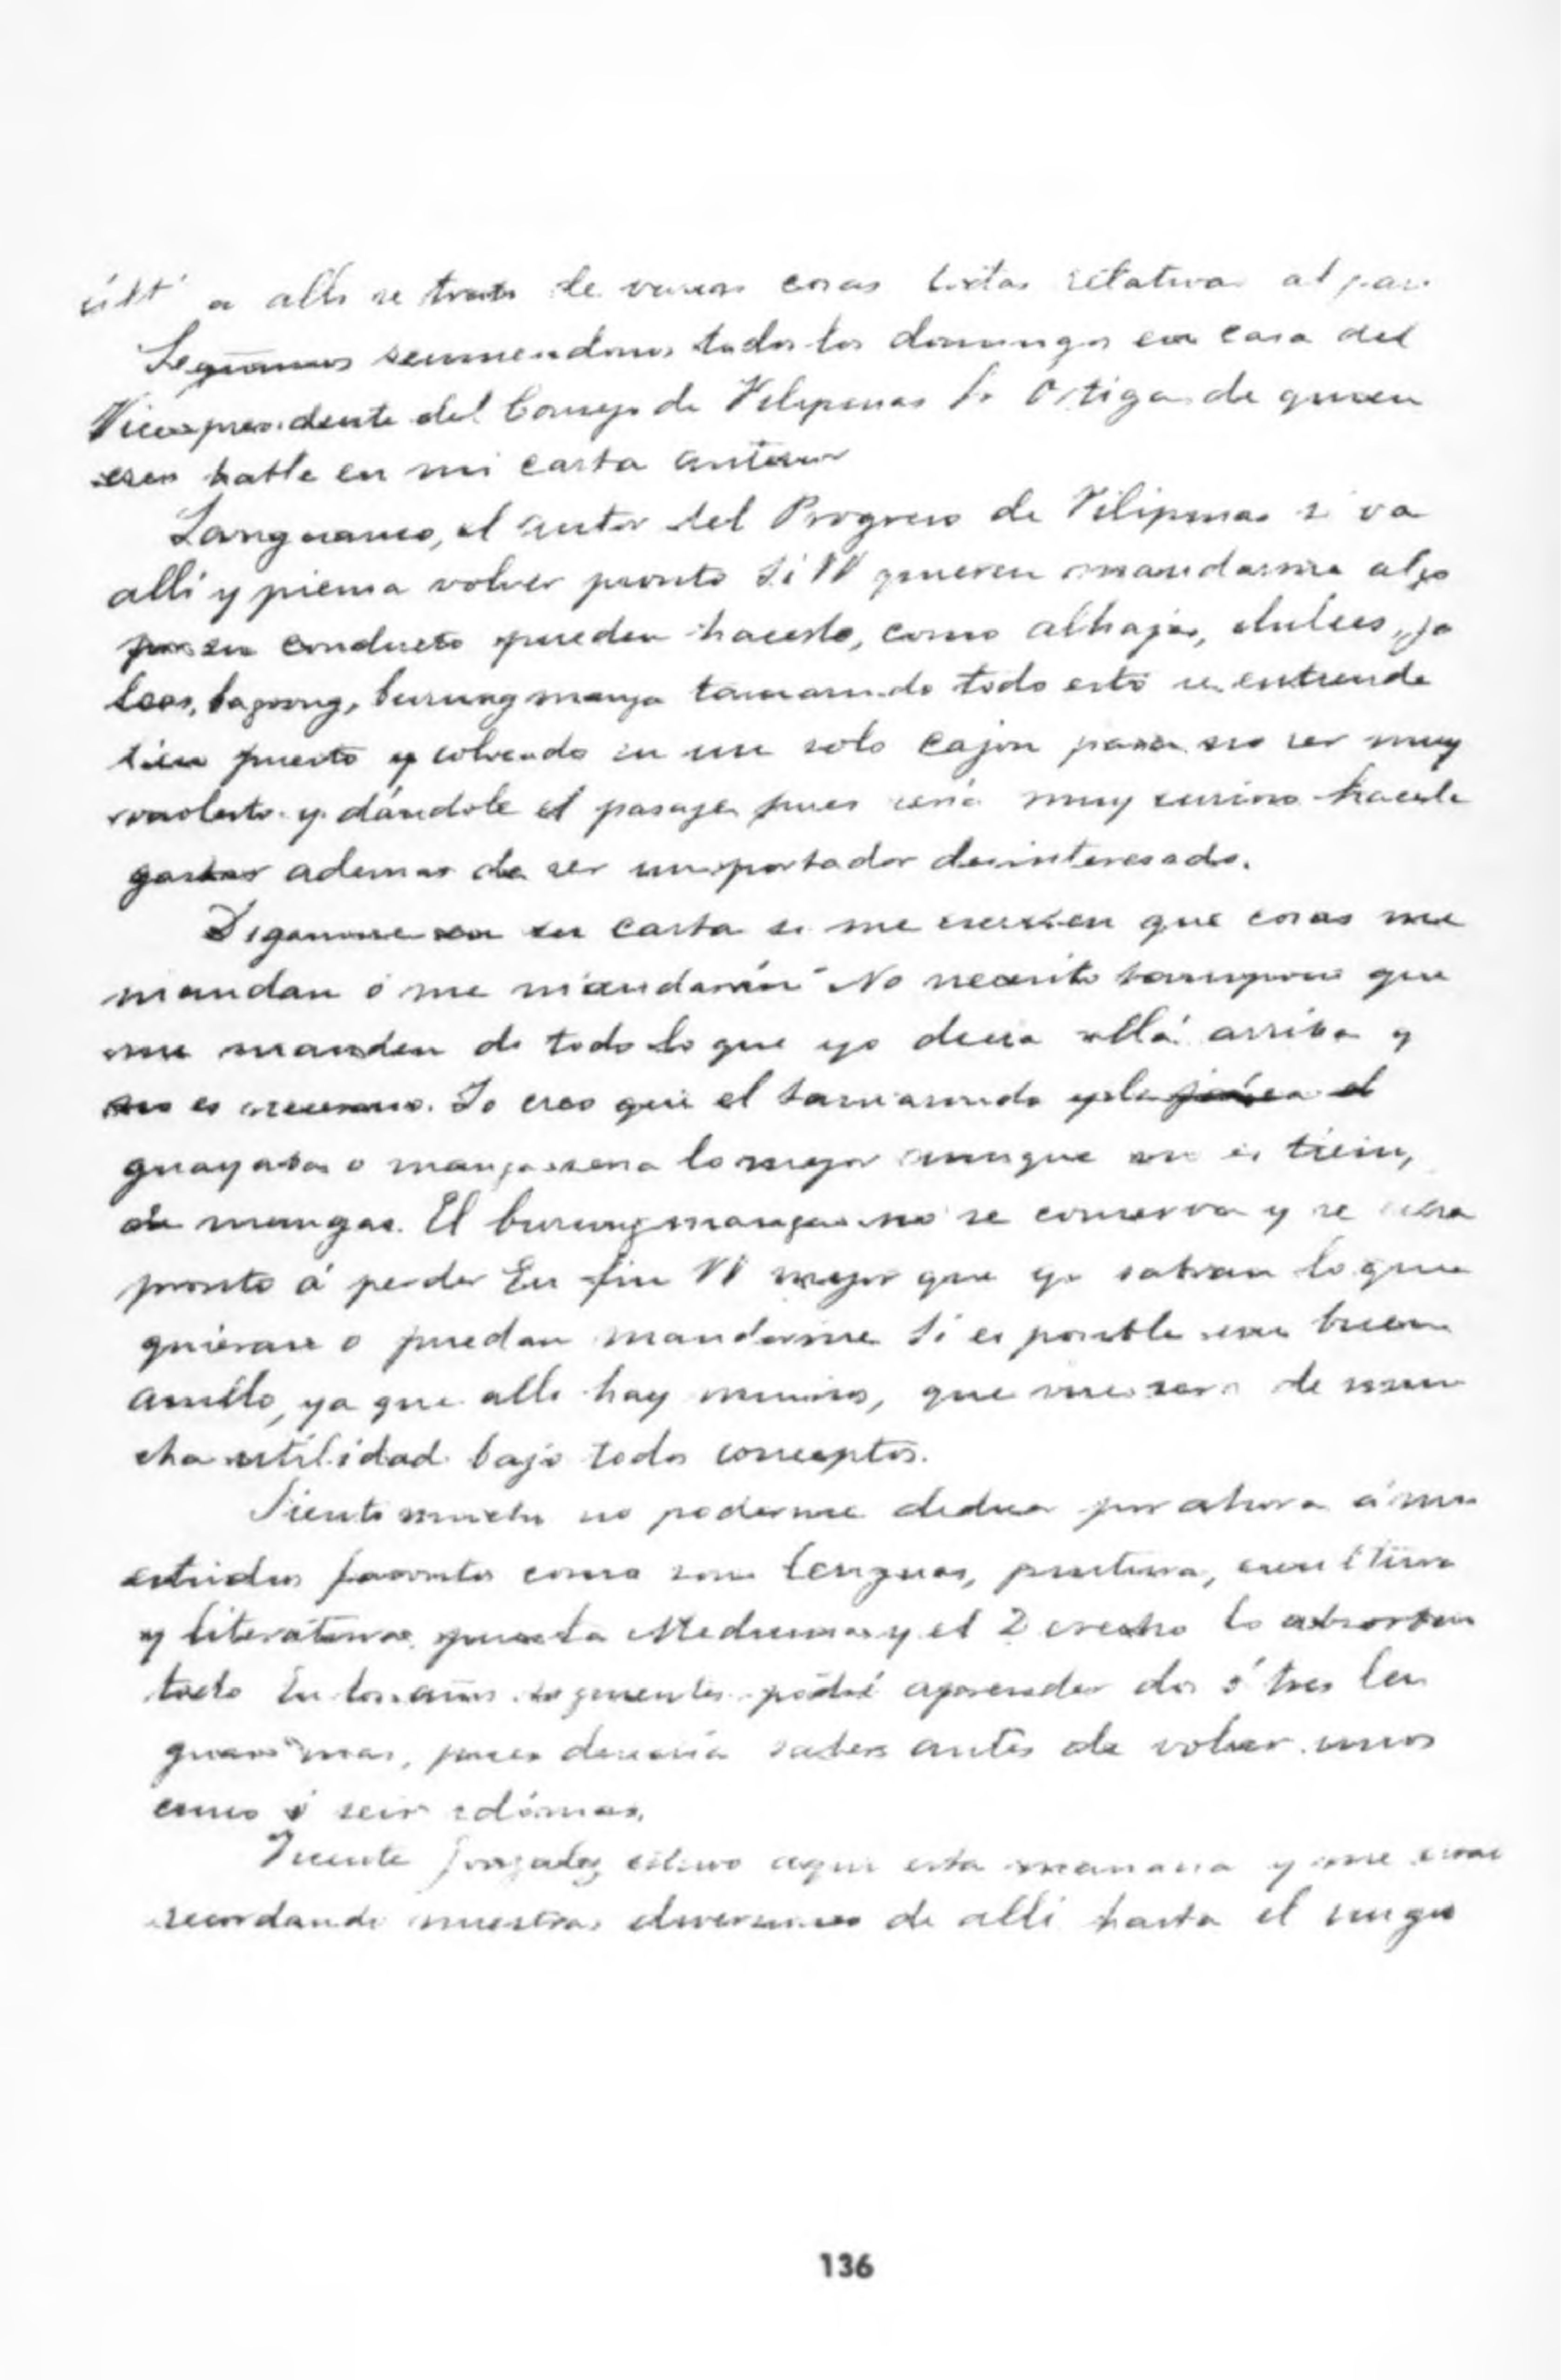 a alli se trata de varias cosas todas relativas al pais
Seguimos reuniendonos todos los domingos en casa del
Vice-presidente del Consejo de Filipinas Sr Ortiga de quien
creo hablé en mi carta anterior
Sanguianco, el autor del Progreso de Filipinas se va
allí y piensa volver pronto Si VV quieren mandarme algo
por su conducto pueden hacerlo, como alhajas, dulces, ja
leas, bagoong, burung manga tamarindo todo esto se entiende
bien puesto y colocado en un solo cajon para no ser muy
molesto y dándole el pasaje pues seria muy hacerle
gastar ademas de ser un portador desinteresado.
Diganme en su carta si me escriben que cosas me
mandan ó me mandarán No necesito tampoco que
me manden de todo lo que yo decia allá arriba y
no es necesario. Yo creo que el tamarindo y la jalea el
guayaba o manga seria lo mejor aunque no es tiem,
de mangas. El burung manga no se conserva y se echa
pronto á perder En fin VV mejor que yo sabran lo que
quieran o puedan mandarme Si es posible un buen
anillo, ya que alli hay muchos, que me sera de mu
cha utilidad bajo todos conceptos.
Siento mucho no poderme dedicar por ahora á mis
estudios favoritos como son lenguas, pintura, escultura
y literatura pues la Medicina y el Derecho lo absorben
todo En los años siguientes podré aprender dos ó tres len
guas mas, pues desearia saber antes de volver unos
cinco ó seis idiomas.
Vicente Gonzalez estuvo aqui esta manana y me
recordando nuestras diversiones de allí hasta el
136